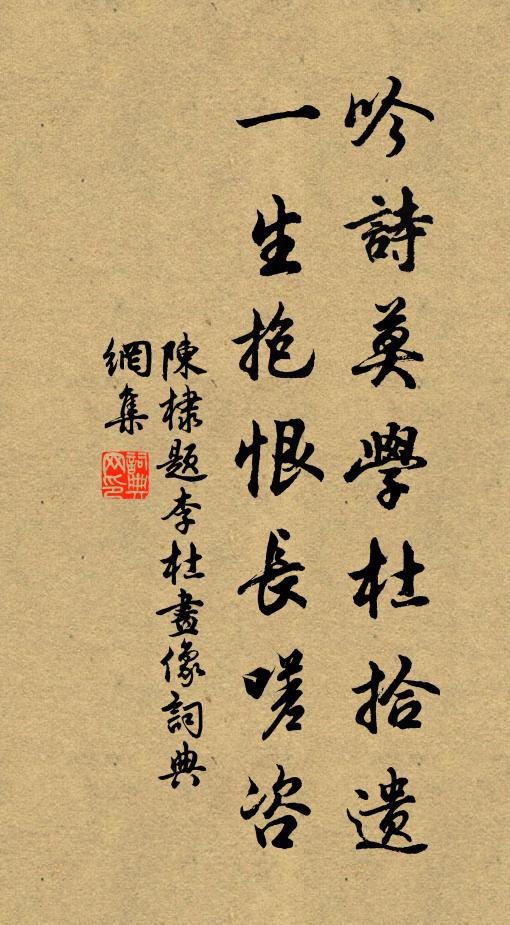 吟詩莫學杜拾遺
一生抱恨長嗟咨
陳棣題李杜畫像詞典
網集
詞典網印